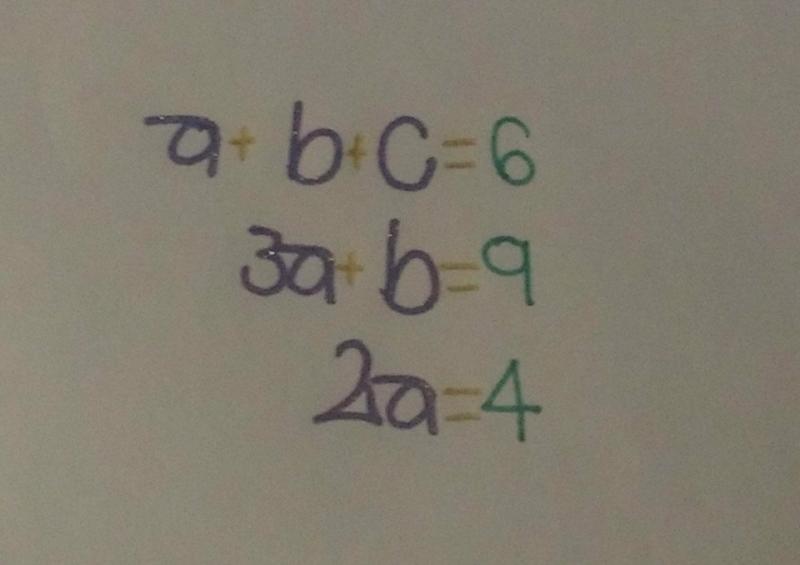 a + b + c = 6
3a + b = 9
2a = 4